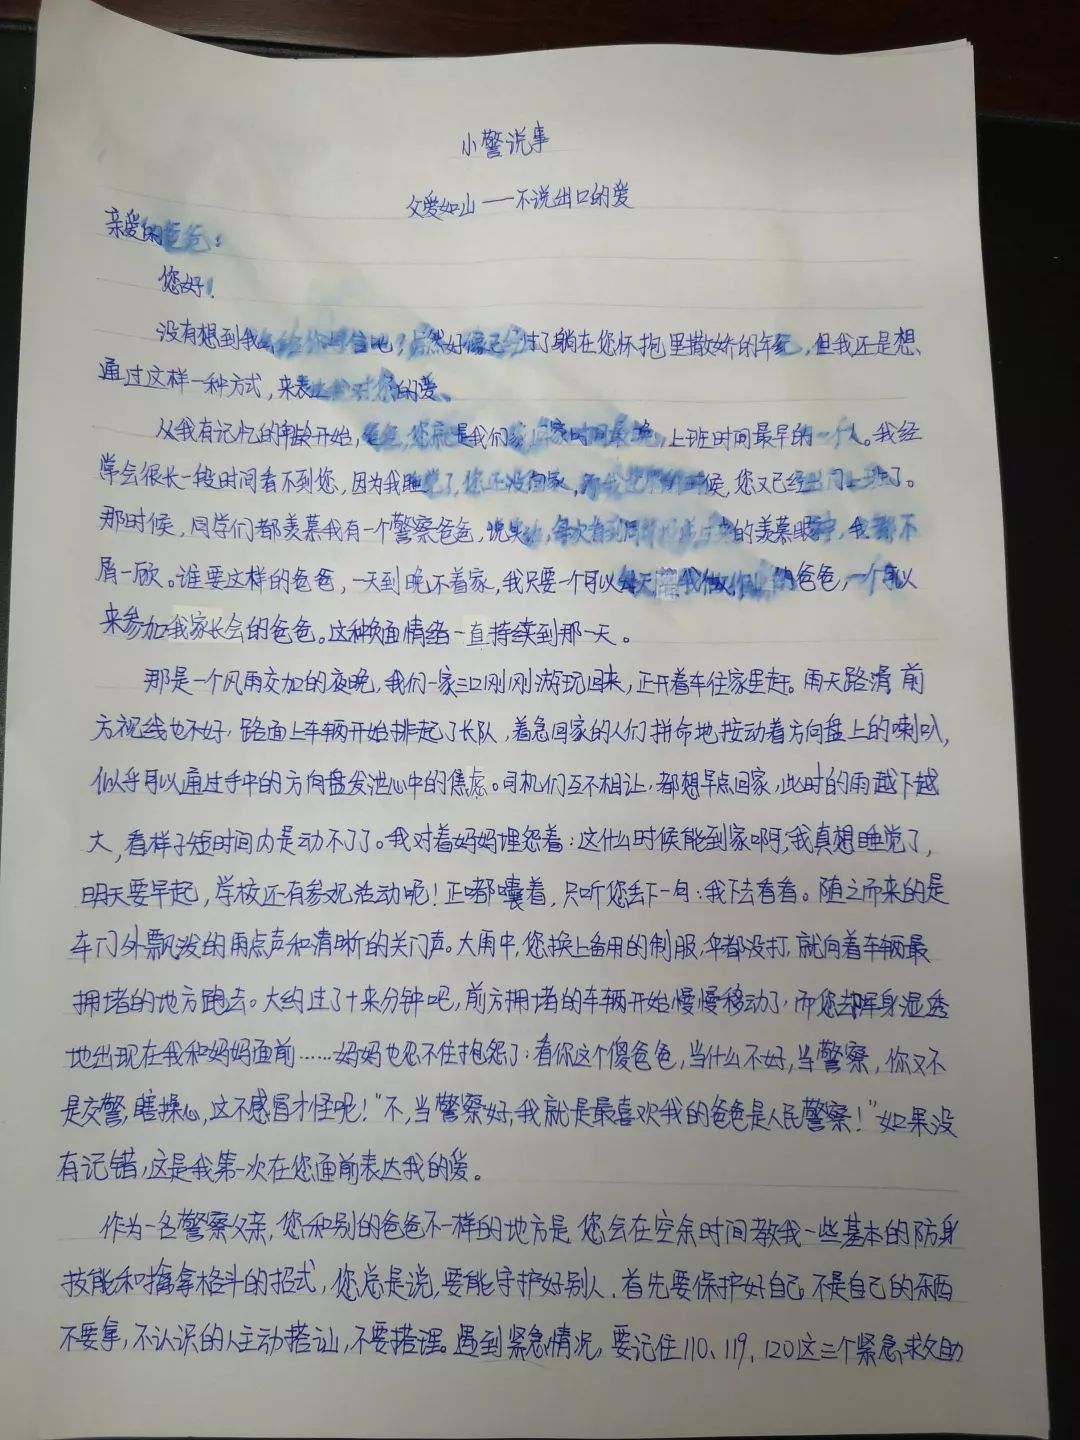 小警说事
父爱如山——不说出口的爱
亲爱的爸爸：
您好！
没有想到我会给你写信吧？虽然好像已经过了躺在您怀抱里撒娇的年纪，但我还是想、
通过这样一种方式，来表达我对您的爱、
从我有记忆的年龄开始，爸爸，您就是我们家回家时间最晚，上班时间最早的一个人。我经
常会很长一段时间看不到您，因为我睡觉了，您还没回家，等我起床的时候，您又已经出门上班了。
那时候，同学们都羡慕我有一个警察爸爸，说实话，每次看到同学的羡慕眼神，我都不
屑一顾。谁要这样的爸爸，一天到晚不着家，我只要一个可以每天陪我做作业的爸爸，一个可以
来参加我家长会的爸爸。这种负面情绪一直持续到那一天。
那是一个风雨交加的夜晚，我们一家三口刚刚游玩回来，正开着车往家里赶。雨天路滑 前
方视线也不好，路面上车辆开始排起了长队，着急回家的人们拼命地按动着方向盘上的喇叭，
似乎可以通过手中的方向盘发泄心中的焦虑。司机们互不相让，都想早点回家，此时的雨越下越
大，看样子短时间内是动不了了。我对着妈妈埋怨着：这什么时候能到家啊，我真想睡觉了，
明天要早起，学校还有参观活动呢！正嘟囔着，只听您丢下一句：我下去看看。随之而来的是
车门外飘泼的雨点声和清晰的关门声。大雨中，您换上备用的制服，伞都没打，就向着车辆最
拥堵的地方跑去。大约过了十来分钟吧，前方拥堵的车辆开始慢慢移动了，而您却浑身湿透
地出现在我和妈妈面前……妈妈也忍不住抱怨了：看你这个傻爸爸，当什么不好，当警察，你又不
是交警，瞎操心，这不感冒才怪呢！"不，当警察好，我就是最喜欢我的爸爸是人民警察！"如果没
有记错，这是我第一次在您面前表达我的爱。
作为一名警察父亲，您和别的爸爸不一样的地方是 您会在空余时间教我一些基本的防身
技能和擒拿格斗的招式，您总是说，要能守护好别人，首先要保护好自己。不是自己的东西
不要拿，不认识的人主动搭讪，不要搭理。遇到紧急情况，要记住110、119、120这三个紧急求助